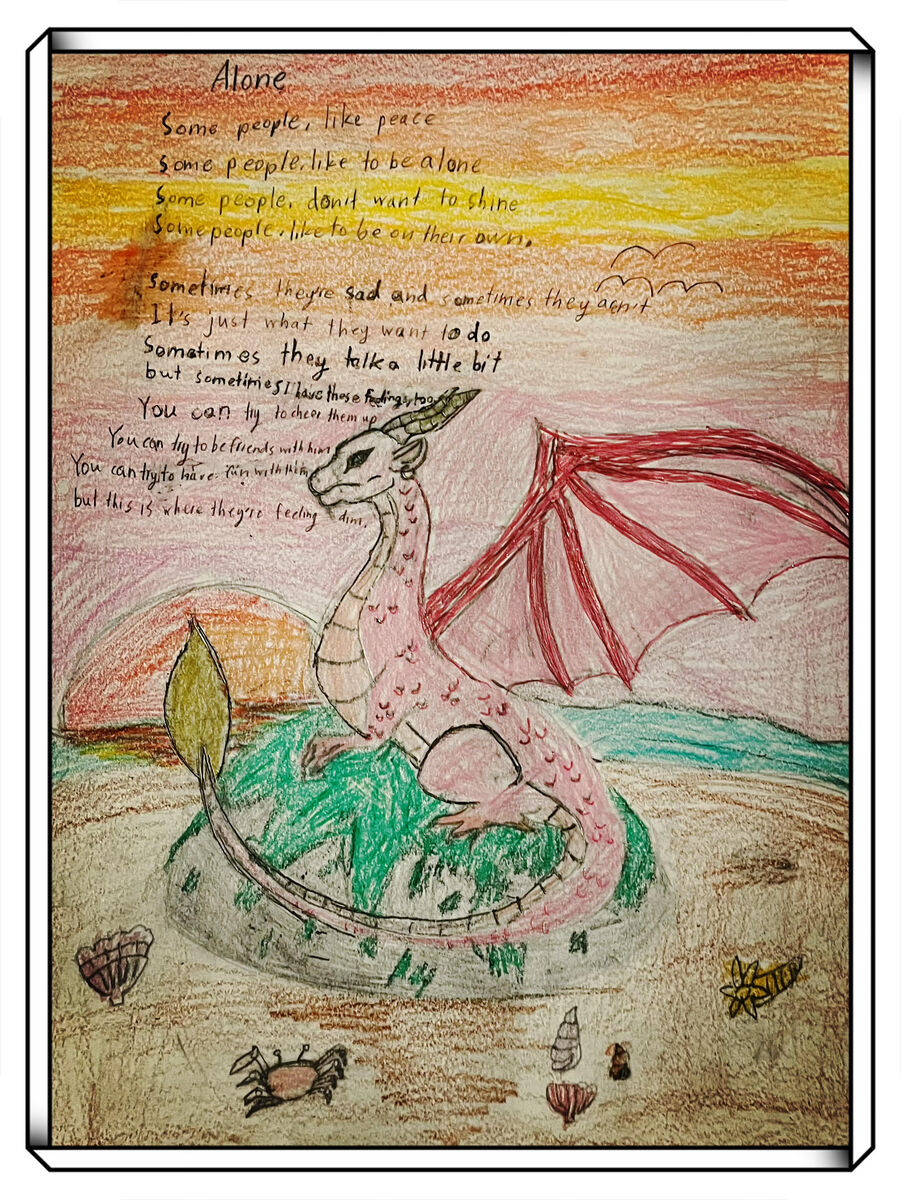 Alone
Some people, like peace
Some people, like to be alone
Some people, don't want to shine
Some people, like to be on their own.
Sometimes they're sad and sometimes they arn't
It's just what they want to do
Sometimes they talk a little bit
but sometimes I have these feelings, too
You can try to cheer them up
You can try to be friends with him
You can try to have fun with him
but this is where they're feeling dim.